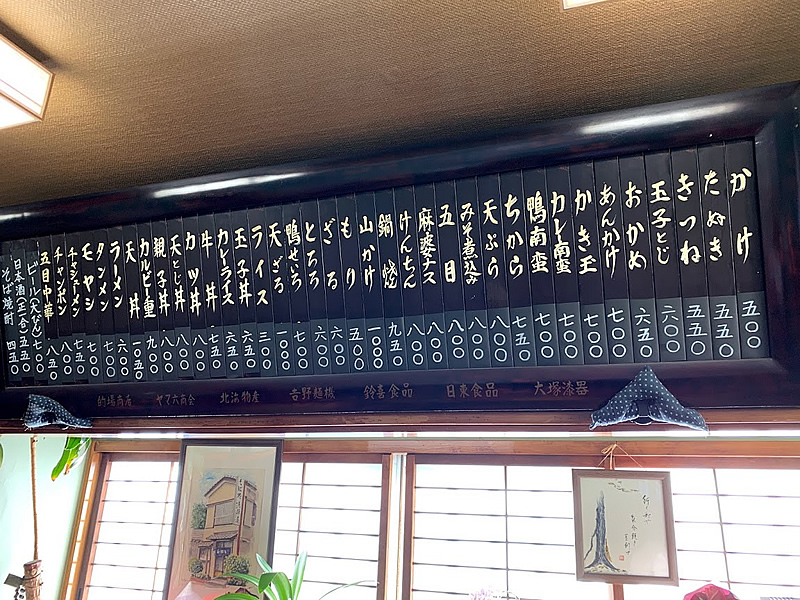 かけ 五〇〇
たぬき 五五〇
きつね 五五〇
玉子とじ 六〇〇
おかめ 六五〇
あんかけ 七〇〇
かき玉 七〇〇
カレー南蛮 七〇〇
鴨南蛮 七〇〇
ちから 七五〇
天ぷら 八〇〇
みそ煮込み 八〇〇
五目 八〇〇
麻婆ナス 八〇〇
けんちん 八〇〇
鍋焼 九五〇
山かけ 一〇〇〇
もり 五〇〇
ざる 六〇〇
とろろ 六〇〇
鴨せいろ 七〇〇
天ざる 一〇〇〇
ライス 三〇〇
玉子丼 六五〇
カレーライス 六五〇
牛丼 七五〇
カツ丼 八〇〇
天とじ丼 八〇〇
親子丼 七〇〇
カルビー重 九〇〇
天丼 一〇五〇
ラーメン 六〇〇
タンメン 七〇〇
モヤシ 七〇〇
チャーシューメン 八五〇
チャンポン 八〇〇
五目中華 八五〇
ビール(大びん) 七〇〇
日本酒(正一合) 五五〇
そば焼酎 四五〇
的場商店 ヤマ六商会 北海物産 吉野麺機 鈴喜食品 日東食品 大塚漆器